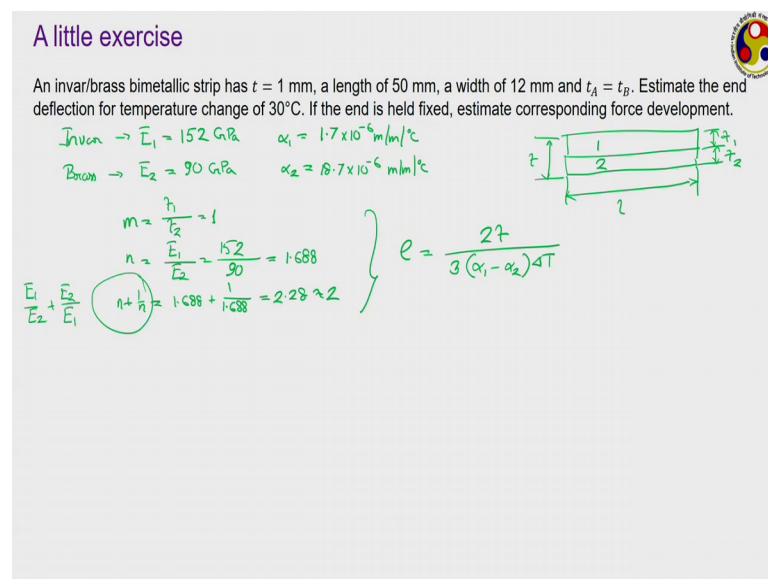 A little exercise
An invar/brass bimetallic strip has t = 1 mm, a length of 50 mm, a width of 12 mm and t_A = t_B. Estimate the end
deflection for temperature change of 30°C. If the end is held fixed, estimate corresponding force development.
Invar → E₁ = 152 GPa α₁ = 1.7×10⁻⁶ m/m/°C
Brass → E₂ = 90 GPa α₂ = 18.7×10⁻⁶ m/m/°C
t 1 2 t₁ t₂
l
m = t₁/t₂ = 1
n = E₁/E₂ = 152/90 = 1.688
e = 2t / 3(α₁-α₂)ΔT
E₁/E₂ + E₂/E₁ n+1/n = 1.688 + 1/1.688 = 2.28 ≈ 2